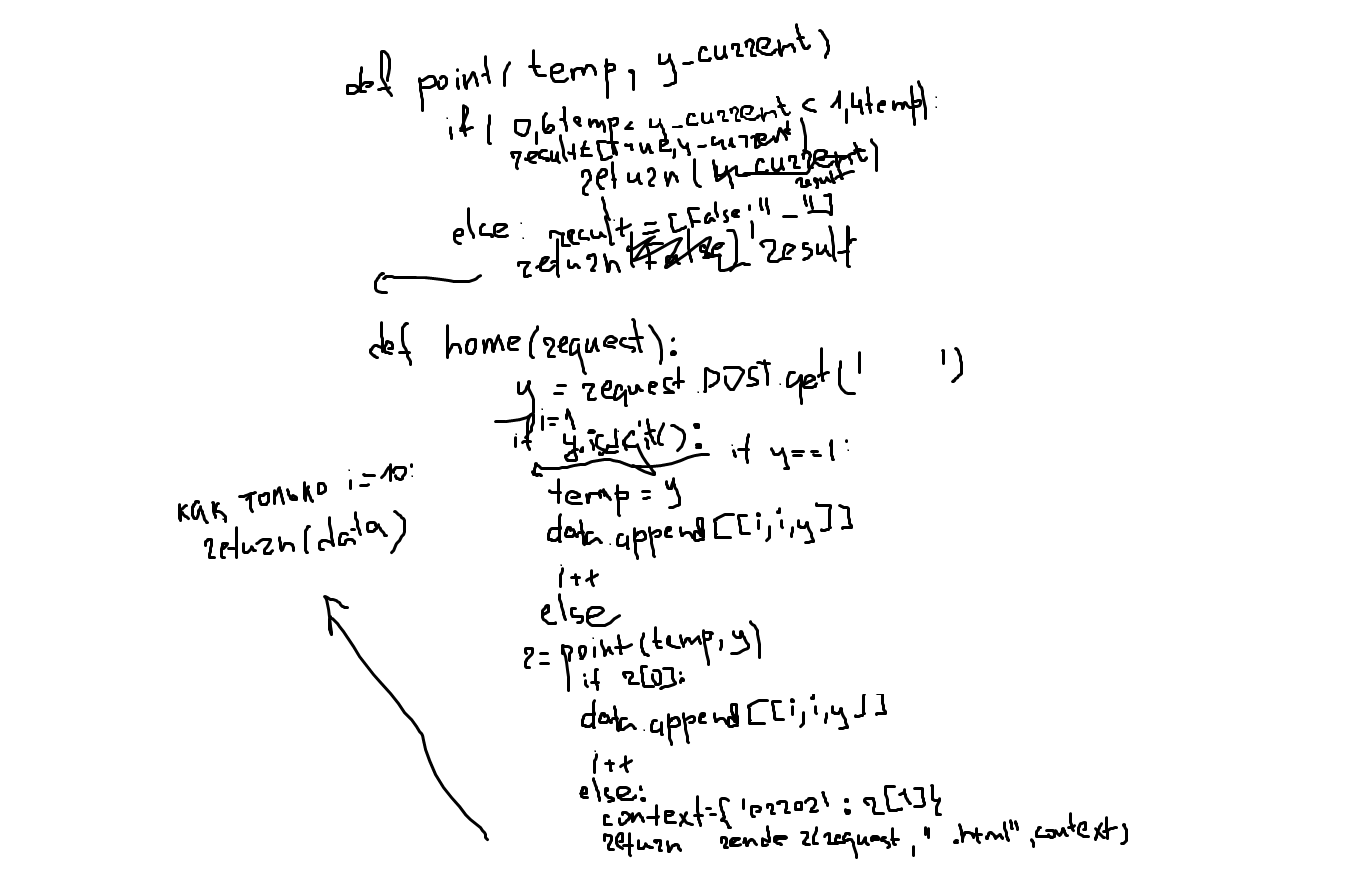 def point(temp, y_current)
if(0,6temp< y_current < 1,4temp):
result=[True, y_current]
return(y_current)
result
else: result = [False," _ "]
return [False] result
def home(request):
y = request.POST.get(' ')
i=1
if y.isdigit(): if y==1:
temp = y
data.append[[i,i,y]]
i++
else
r=point(temp,y)
if r[0]:
data.append[[i,i,y]]
i++
else:
context={'error' : r[1]}
return render(request," .html",context)
как только i=10:
return(data)